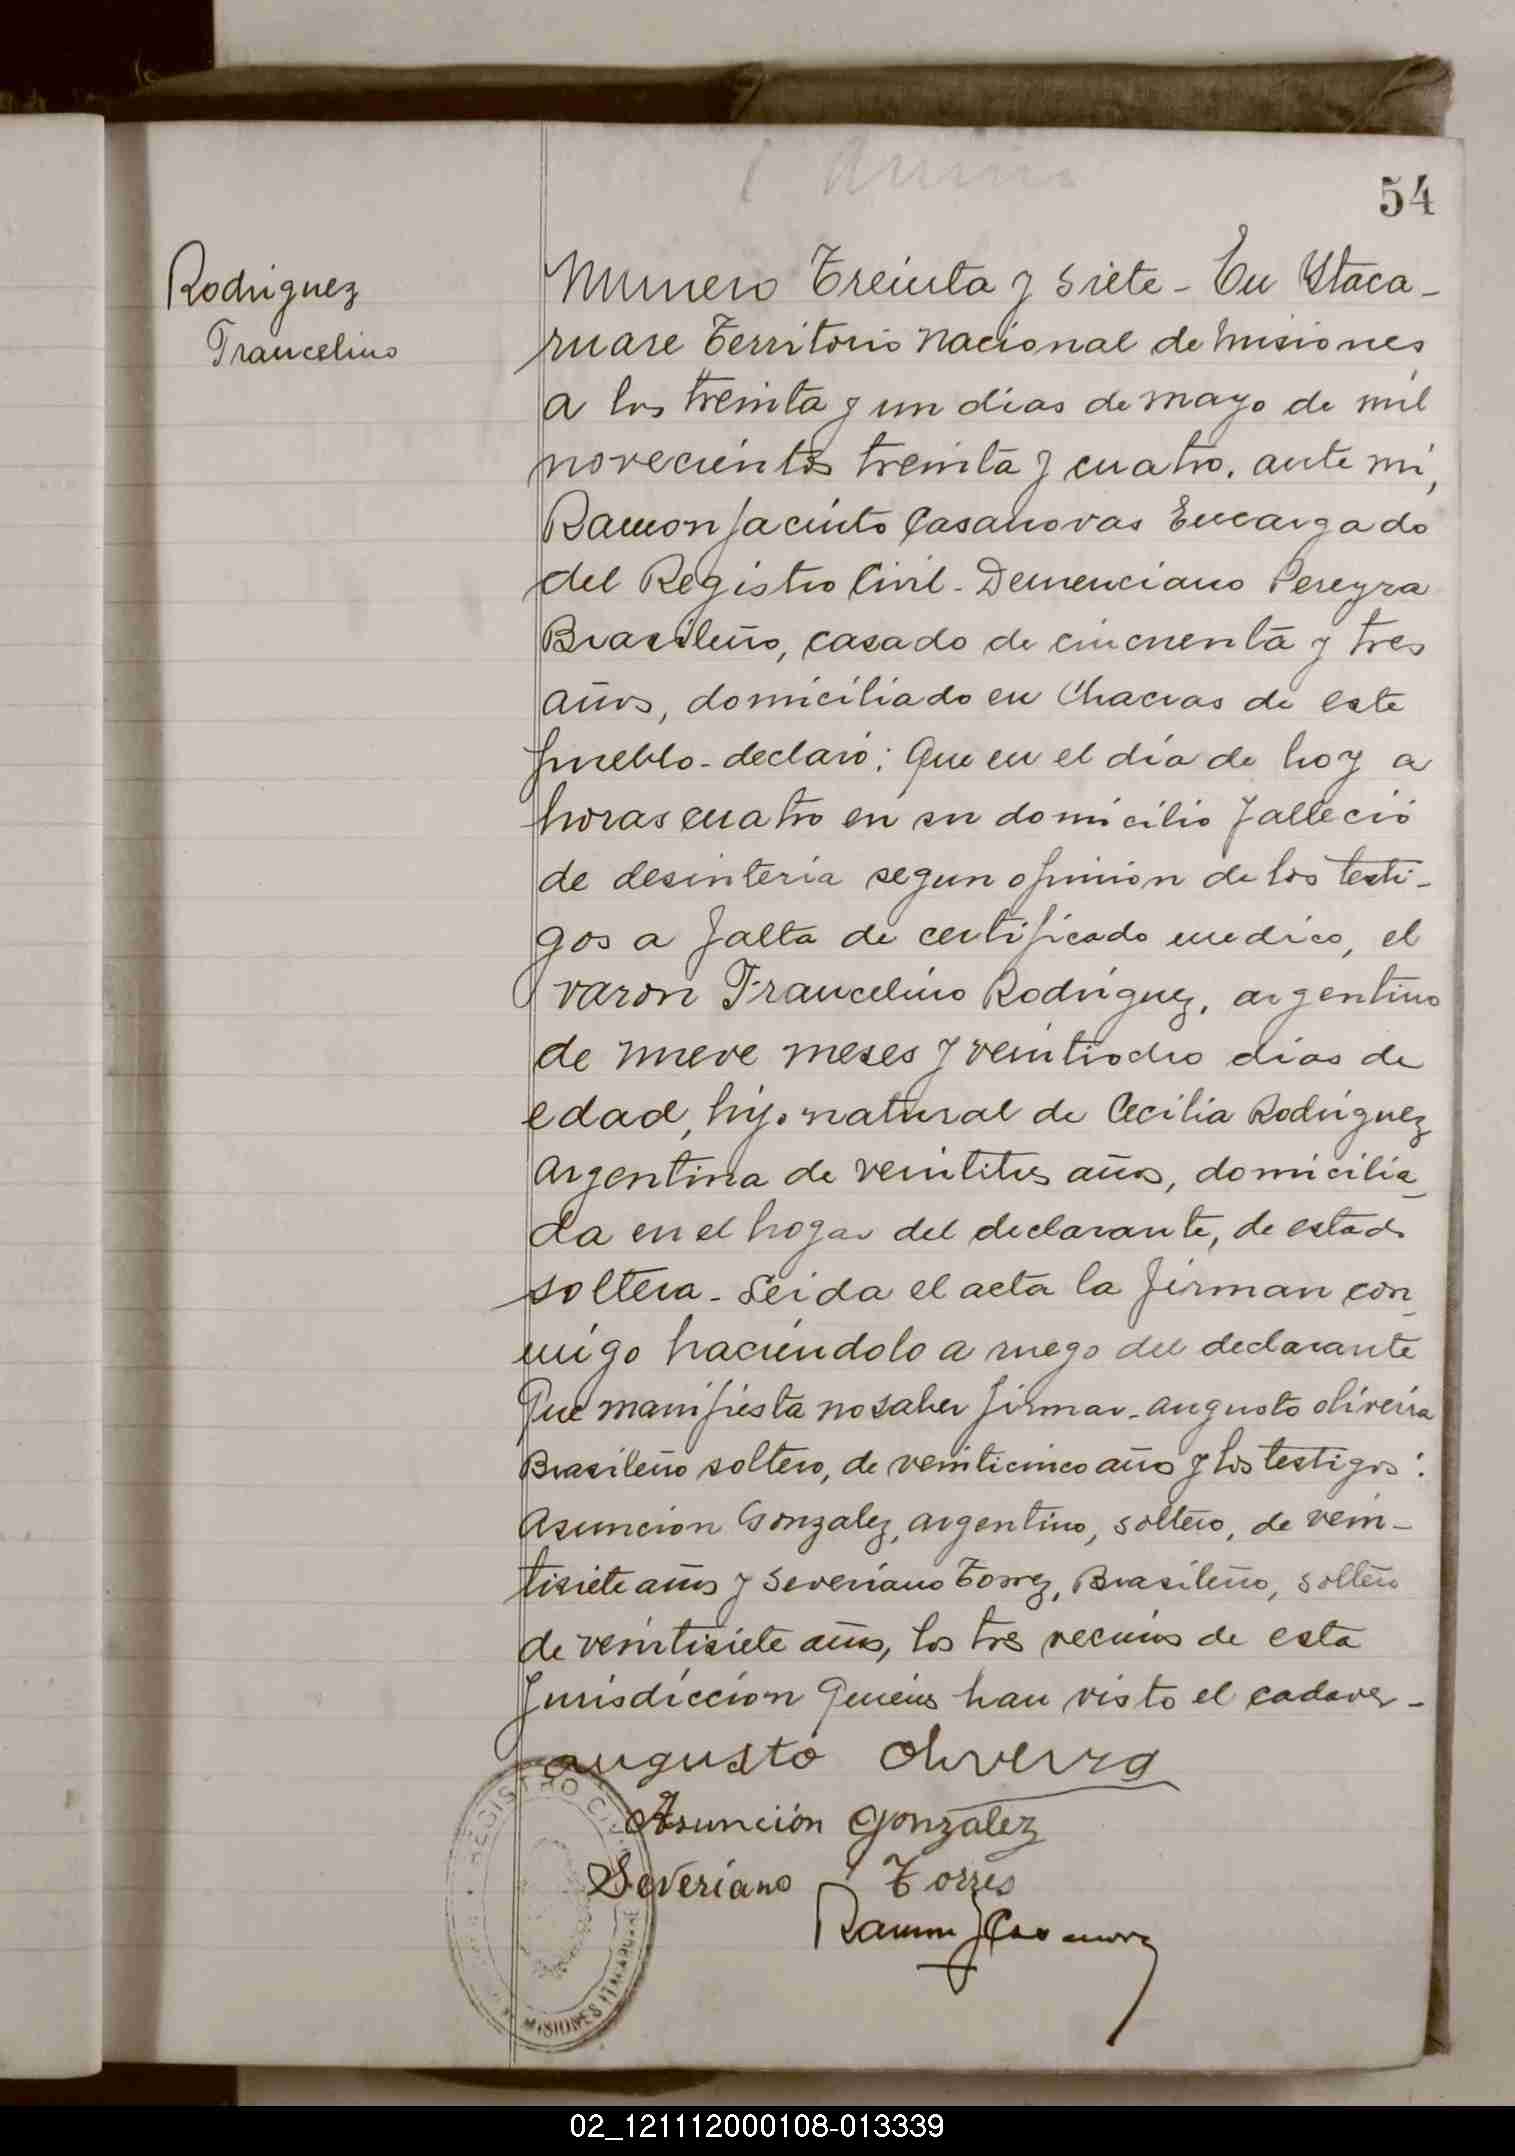 54
Rodriguez
Francelino
Numero Treinta y siete - En Ytaca-
ruare Territorio Nacional de Misiones
a los treinta y un dias de mayo de mil
novecientos treinta y cuatro. ante mi,
Ramon Jacinto Casanovas Encargado
del Registro Civil - Demenciano Pereyra
Brasileño, casado de cincuenta y tres
años, domiciliado en Chacras de este
pueblo - declaró: Que en el día de hoy a
horas cuatro en su domicilio falleció
de desinteria segun opinion de los testi-
gos a falta de certificado medico, el
varon Francelino Rodriguez, argentino
de nueve meses y veintiocho dias de
edad, hijo natural de Cecilia Rodriguez
argentina de veintitres años, domicilia-
da en el hogar del declarante, de estado
soltera - Leida el acta la firman con-
migo haciéndolo a ruego del declarante
Que manifiesta no saber firmar - Augusto Oliveira
Brasileño soltero, de veinticinco años y los testigos:
Asuncion Gonzalez, argentino, soltero, de vein-
tisiete años y Severiano Torrez, Brasileño, soltero
de veintisiete años, los tres vecinos de esta
Jurisdiccion Quienes han visto el cadaver -
augusto Oliveira
Asunción Gonzalez
Severiano Torres
Ramon J Casanovas
REGISTRO CIVIL
MISIONES ITACARUARE
02_121112000108-013339